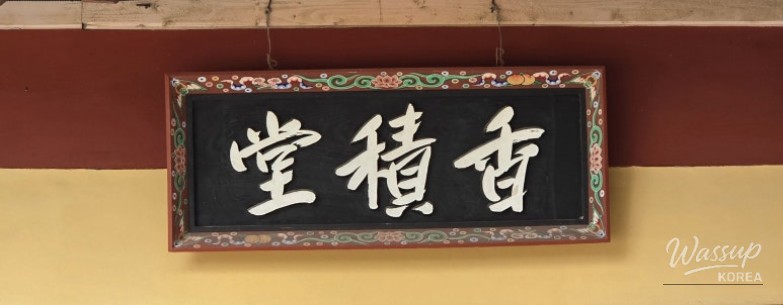 香積堂
Wassup
KOREA